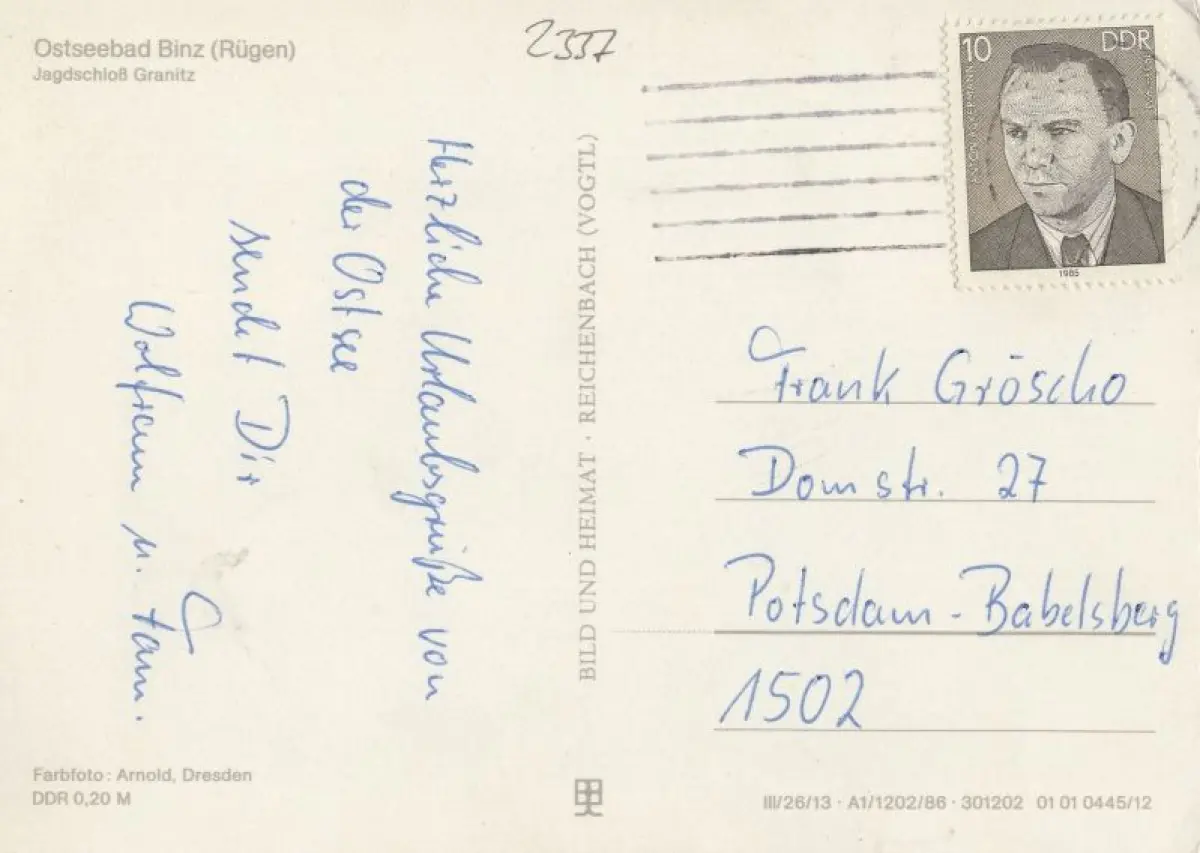 Ostseebad Binz (Rügen)
Jagdschloß Granitz
2337
10
DDR
ANTON ACKERMANN
1985
Herzliche Urlaubsgrüße von
der Ostsee
sendet Dir
Wolfram u. Fam.
BILD UND HEIMAT · REICHENBACH (VOGTL)
Frank Gröscho
Domstr. 27
Potsdam-Babelsberg
1502
Farbfoto: Arnold, Dresden
DDR 0,20 M
III/26/13 · A1/1202/86 · 301202 01 01 0445/12